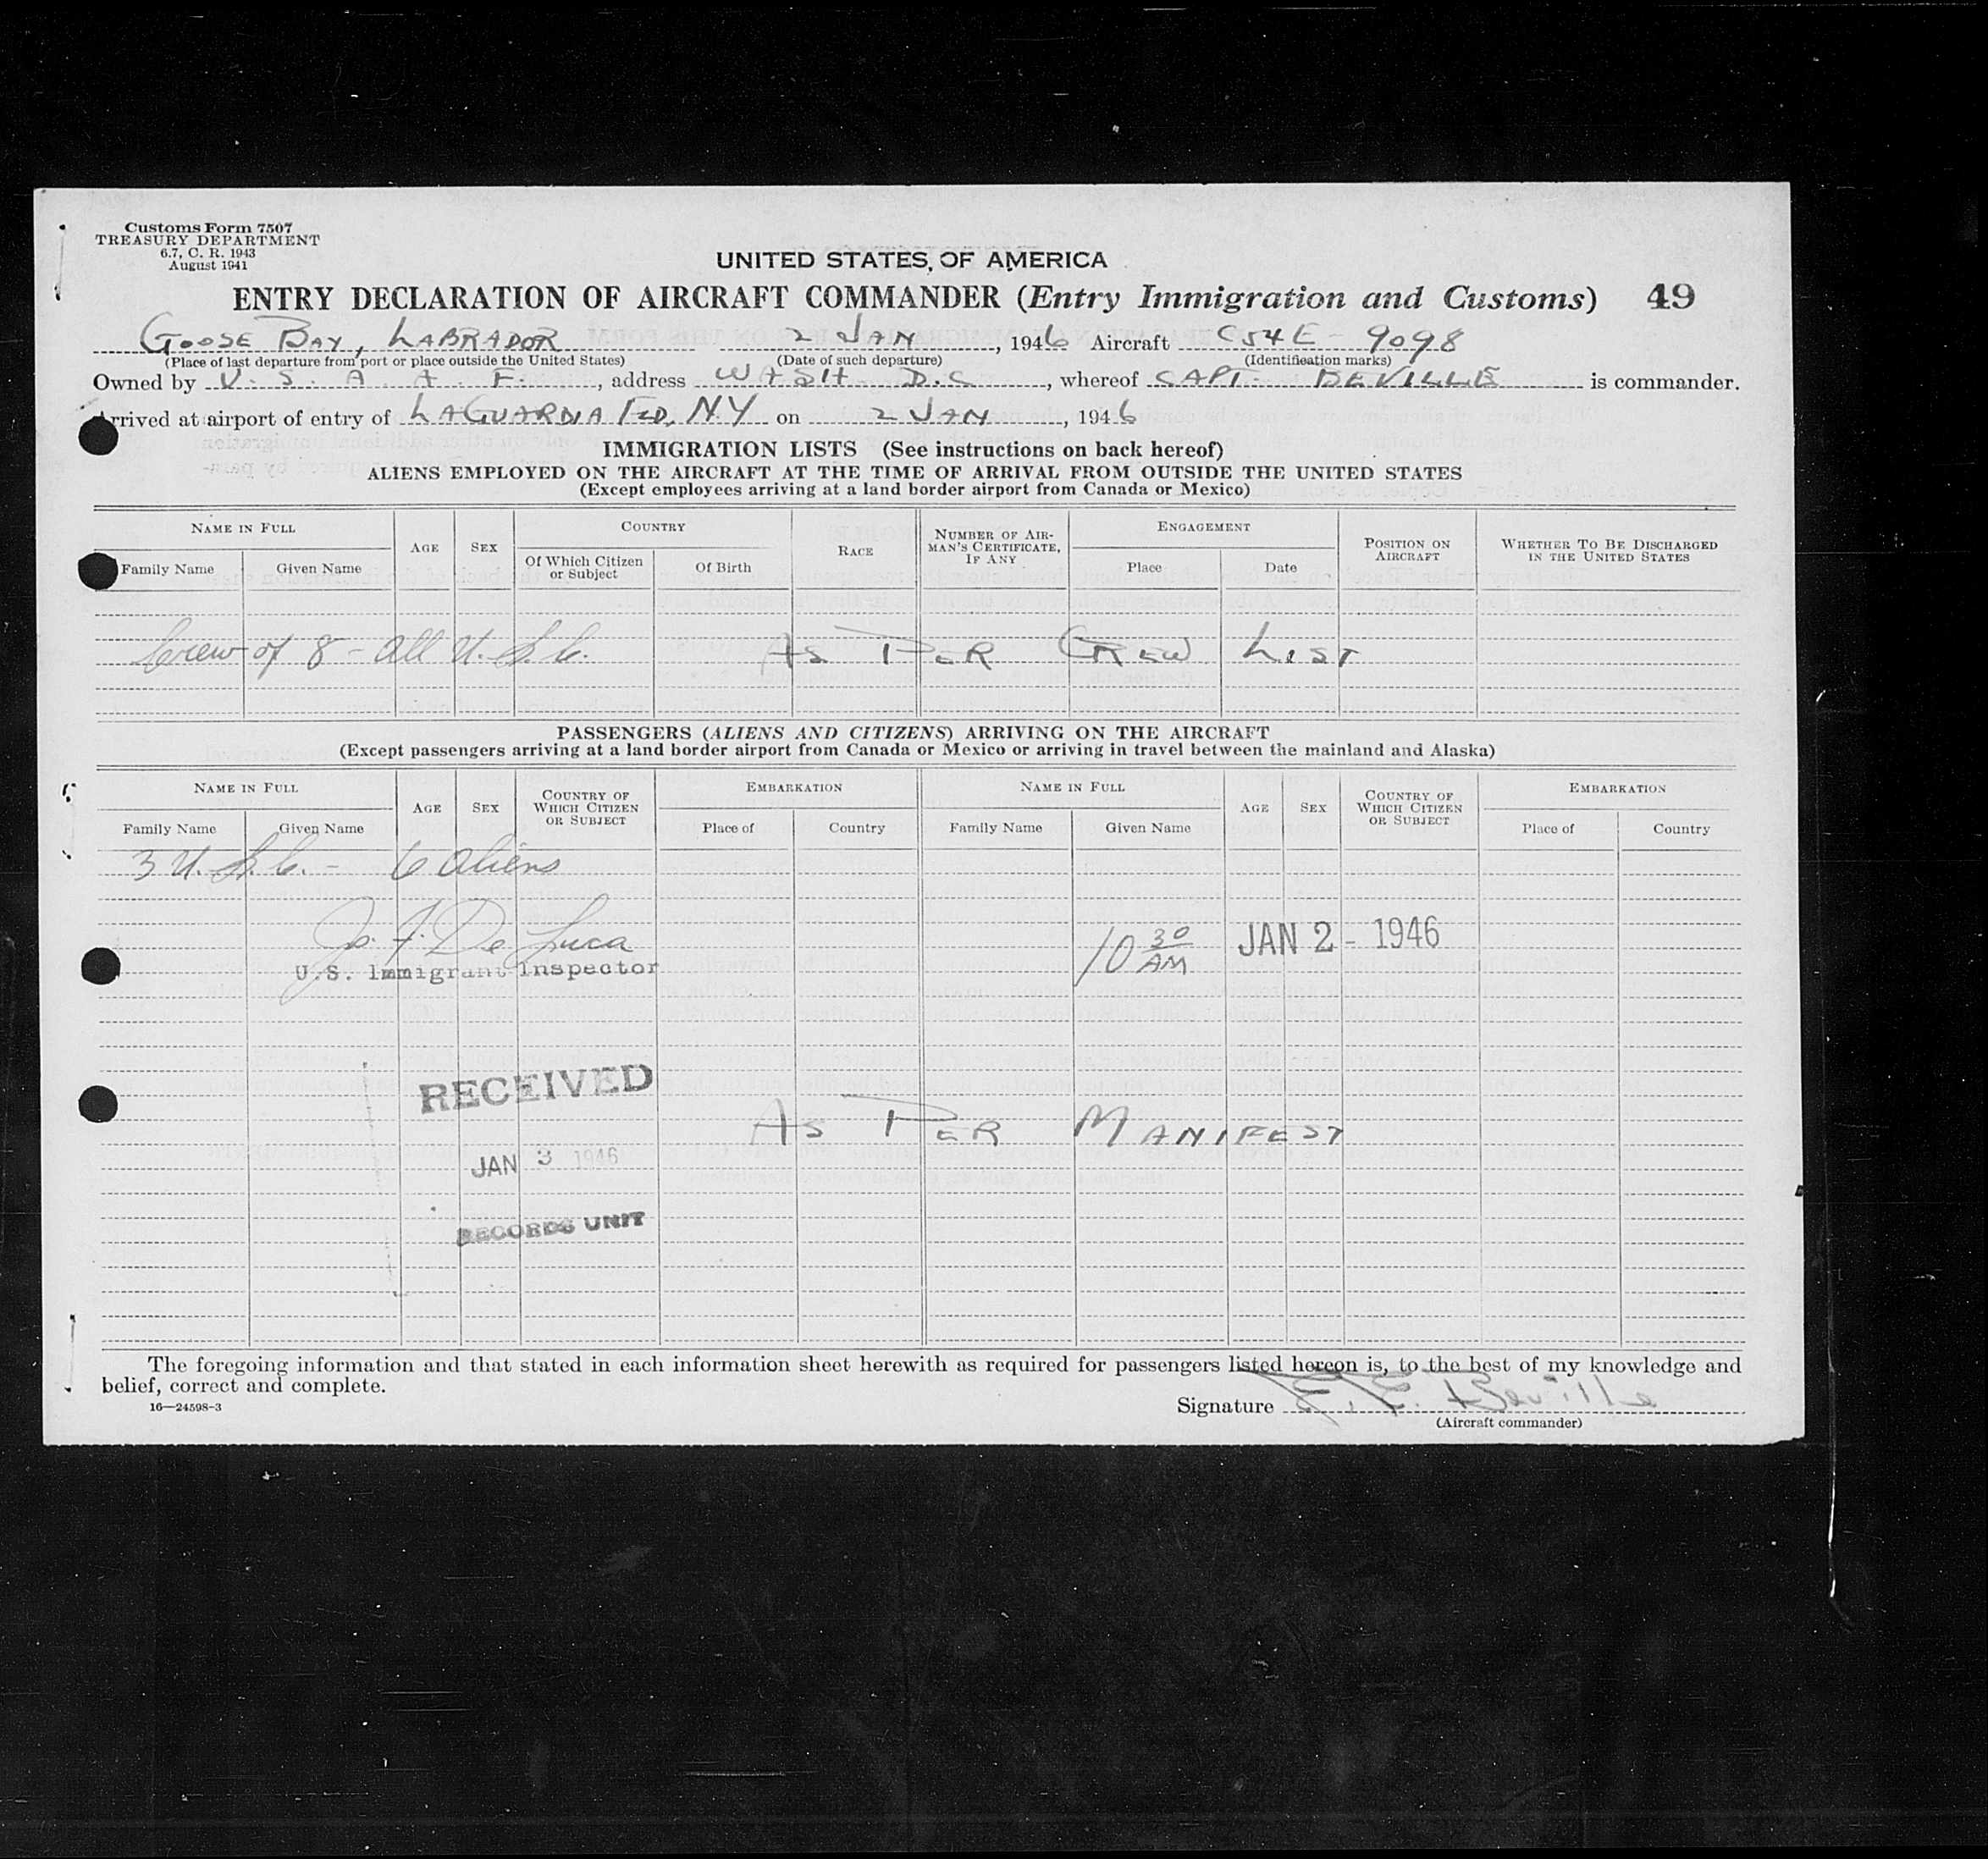 Customs Form 7507
TREASURY DEPARTMENT
6.7, C. R. 1943
August 1941
UNITED STATES OF AMERICA
ENTRY DECLARATION OF AIRCRAFT COMMANDER (Entry Immigration and Customs) 49
GOOSE BAY, LABRADOR 2 JAN, 1946 Aircraft C54E - 9098
(Place of last departure from port or place outside the United States) (Date of such departure) (Identification marks)
Owned by U. S. A. A. F., address WASH D.C, whereof CAPT. BEVILLE is commander.
Arrived at airport of entry of LAGUARDIA FLD, N.Y on 2 JAN, 1946
IMMIGRATION LISTS (See instructions on back hereof)
ALIENS EMPLOYED ON THE AIRCRAFT AT THE TIME OF ARRIVAL FROM OUTSIDE THE UNITED STATES
(Except employees arriving at a land border airport from Canada or Mexico)
NAME IN FULL AGE SEX COUNTRY RACE NUMBER OF AIRMAN'S CERTIFICATE, IF ANY ENGAGEMENT POSITION ON AIRCRAFT WHETHER TO BE DISCHARGED IN THE UNITED STATES
Family Name Given Name Of Which Citizen or Subject Of Birth Place Date
Crew of 8 - all U.S.C. AS PER CREW LIST
PASSENGERS (ALIENS AND CITIZENS) ARRIVING ON THE AIRCRAFT
(Except passengers arriving at a land border airport from Canada or Mexico or arriving in travel between the mainland and Alaska)
NAME IN FULL AGE SEX COUNTRY OF WHICH CITIZEN OR SUBJECT EMBARKATION NAME IN FULL AGE SEX COUNTRY OF WHICH CITIZEN OR SUBJECT EMBARKATION
Family Name Given Name Place of Country Family Name Given Name Place of Country
3 U.S.C. - 6 aliens
Jo. F. De Luca 10 30 AM JAN 2 - 1946
U.S. Immigrant Inspector
RECEIVED
AS PER MANIFEST
JAN 3 1946
RECORDS UNIT
The foregoing information and that stated in each information sheet herewith as required for passengers listed hereon is, to the best of my knowledge and
belief, correct and complete.
16—24598-3
Signature E. E. Beville
(Aircraft commander)